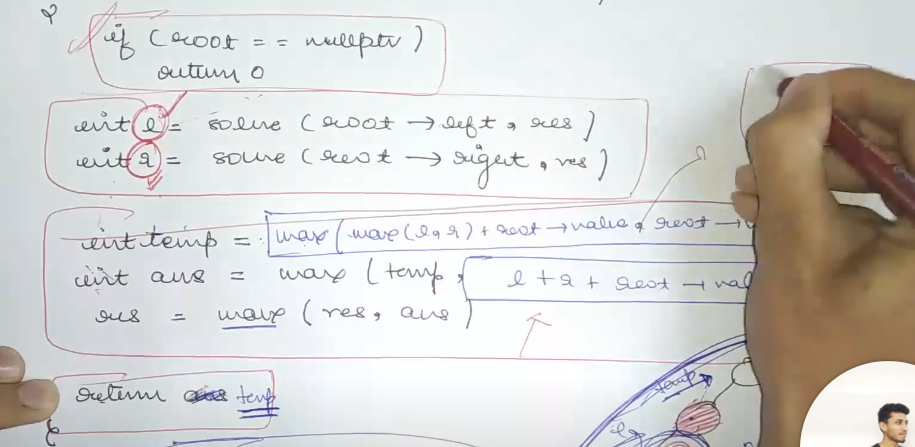 if (root == nullptr)
return 0
int l = solve (root → left, res)
int r = solve (root → right, res)
int temp = max( max(l, r) + root → value, root →
int ans = max (temp, l + r + root → val
res = max (res, ans)
return ans temp
temp